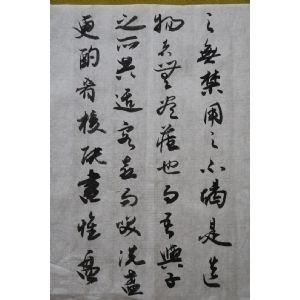 之無禁用之不竭是造
物者之無盡藏也而吾與子
之所共適客喜而笑洗盞
更酌肴核既盡杯盤